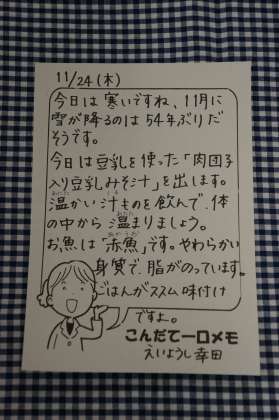 11/24(木)
今日は寒いですね、11月に
雪が降るのは54年ぶりだ
そうです。
今日は豆乳を使った「肉団子
入り豆乳みそ汁」を出します。
温かい汁ものを飲んで、体
の中から温まりましょう。
お魚は「赤魚」です。やわらかい
身質で、脂がのっています。
ごはんがススム味付け
ですよ。
こんだて一口メモ
えいようし 幸田